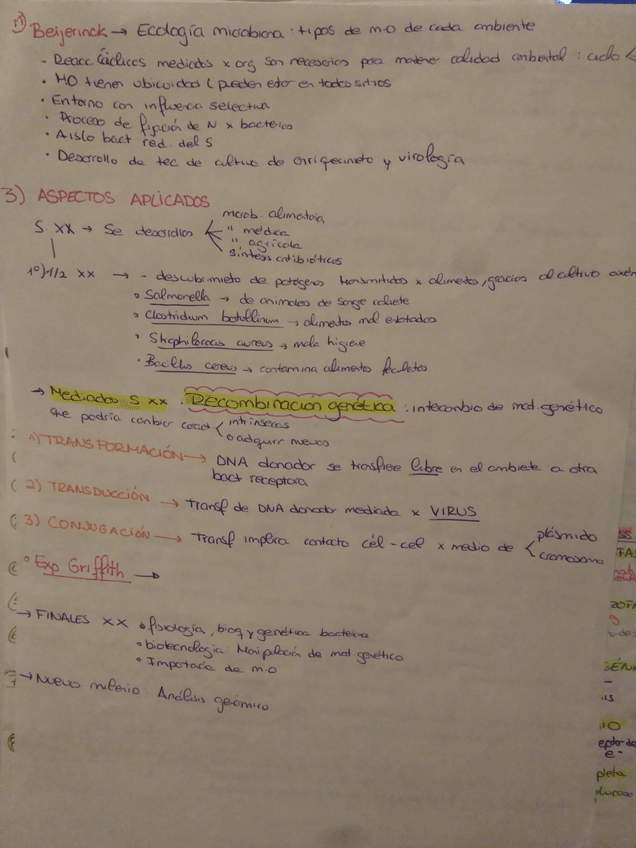 Beijerinck → Ecología microbiana: tipos de m.o de cada ambiente
- Reacc cíclicas mediadas x org son necesarias para mantener calidad ambiental: ciclo
· MO tienen ubicuidad (pueden estar en todos sitios
· Entorno con influencia selectiva
· Proceso de fijación de N x bacterias
· Aisló bact red. del S
· Desarrollo de tec de cultivo de enriquecimiento y virología
3) ASPECTOS APLICADOS
microb. alimentaria
S XX → Se desarrollan " médica
" agrícola
síntesis antibióticos
1º) 1/2 XX → - descubrimiento de patógenos transmitidos x alimentos, gracias al cultivo
· Salmonella → de animales de sangre caliente
· Clostridium botullinum → alimentos mal enlatados
· Staphilococcus aureus → mala higiene
· Bacillus cereus → contamina alimentos feculentos
→ Mediados S XX. Recombinación genética: intercambio de mat. genético
que podría cambiar caract intrínsecas
o adquirir nuevas
1) TRANSFORMACIÓN → DNA donador se transfiere libre en el ambiente a otra
bact receptora
2) TRANSDUCCIÓN → Transf de DNA donador mediada x VIRUS
3) CONJUGACIÓN → Transf implica contacto cél-cel x medio de plásmido
cromosoma
· Exp Griffith →
→ FINALES XX · fisiología, bioq y genética bacteriana
· biotecnología: Manipulación de mat genético
· Importancia de m.o
→ Nuevo milenio: Análisis genómico